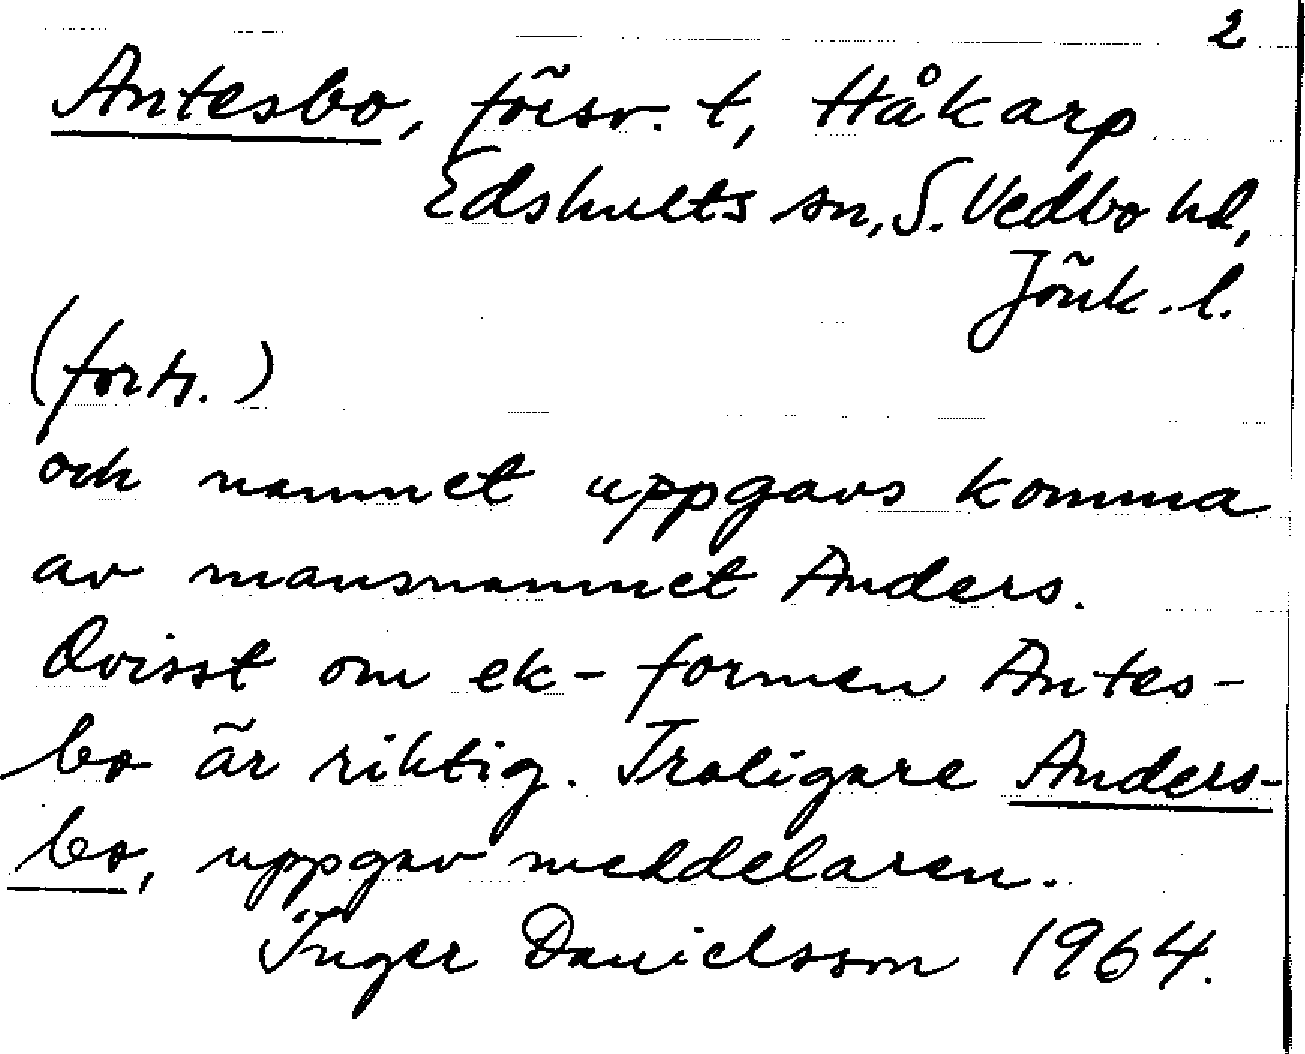 2
Antesbo, försv. t, Håkarp
Edshults sn, S. Vedbo hd,
Jönk. l.
(forts.)
och namnet uppgavs komma
av mansnamnet Anders.
Ovisst om ek-formen Antes-
bo är riktig. Troligare Anders-
bo, uppgav meddelaren.
Inger Danielsson 1964.